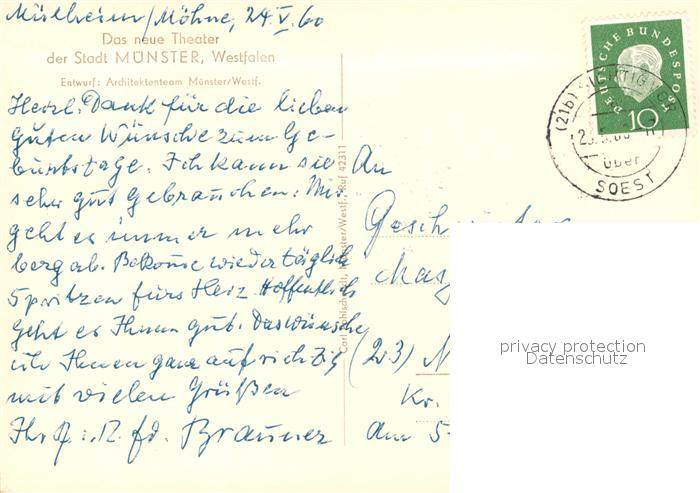 Mülheim/Möhne, 24. V. 60
Das neue Theater
der Stadt MÜNSTER, Westfalen
Entwurf: Architektenteam Münster/Westf.
Herzl. Dank für die lieben
guten Wünsche zum Ge-
burtstage. Ich kann sie
sehr gut gebrauchen. Mir
geht es immer mehr
bergab. Bekomme wieder täglich
Spritzen fürs Herz. Hoffentlich
geht es Ihnen gut. Das wünsche
ich Ihnen ganz aufrichtig
mit vielen Grüßen
Ihr
Brauner
Münster/Westf., Ruf 42311
DEUTSCHE BUNDESPOST
10
(21b)
über
SOEST
An
(23)
Kr.
privacy protection
Datenschutz